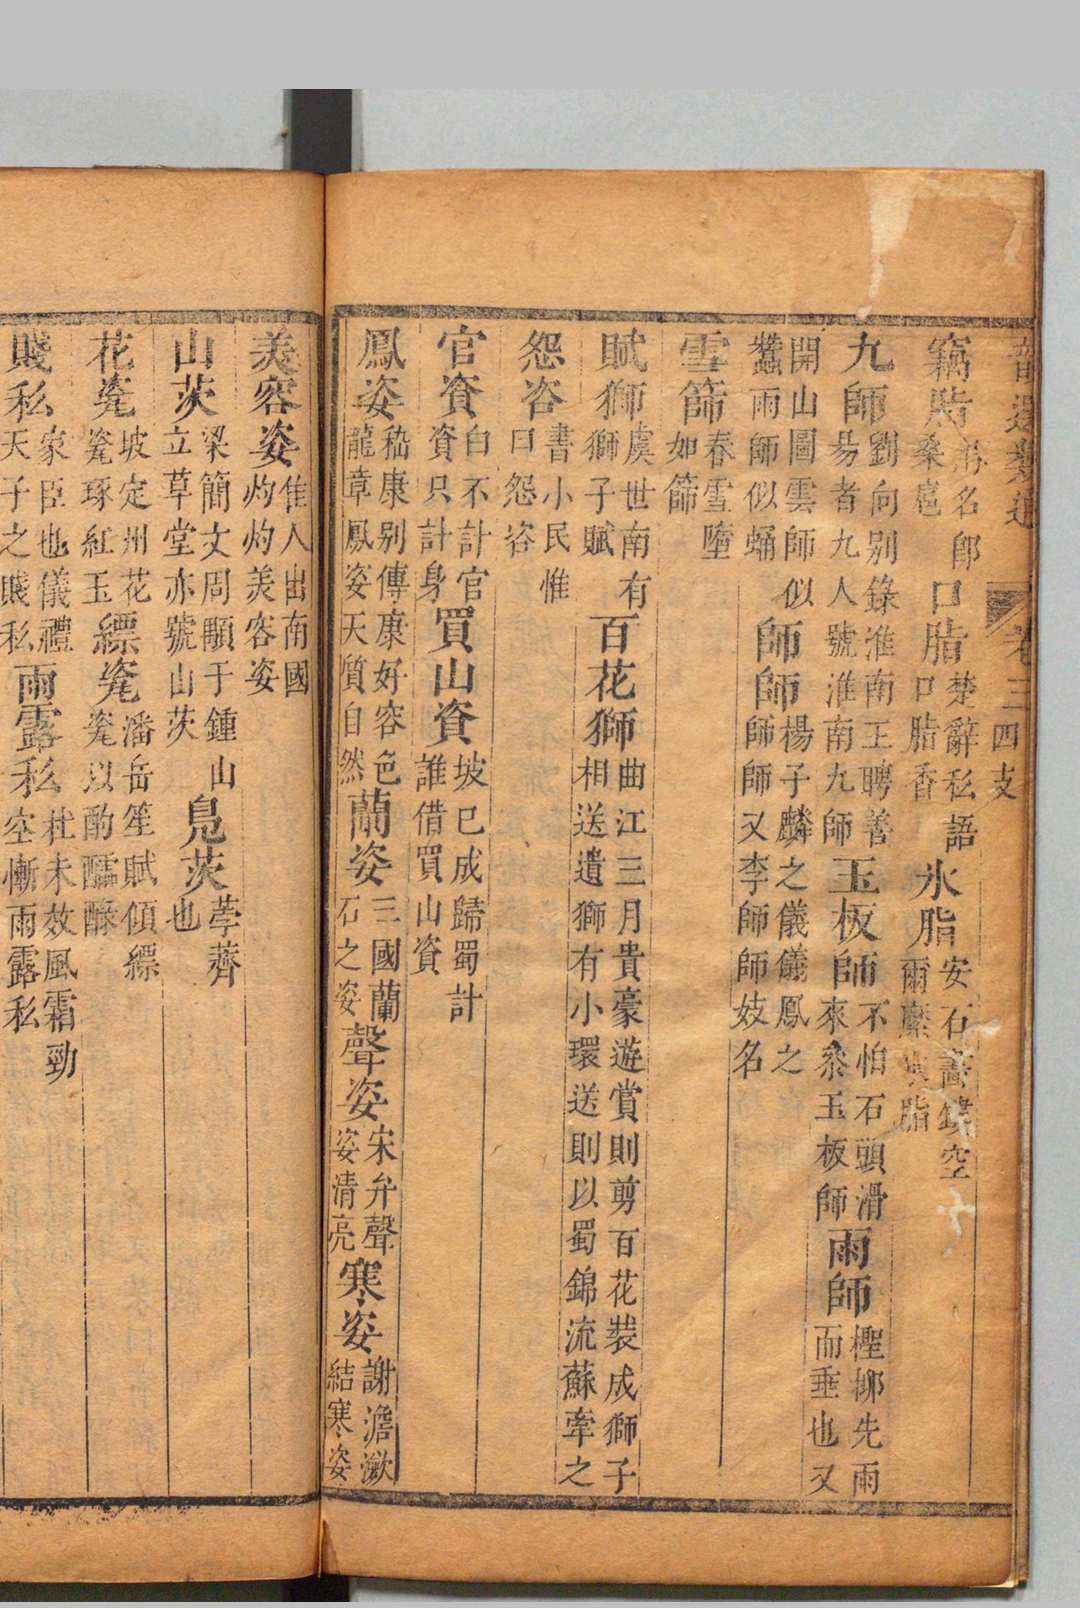 卷三 四支
竊脂
桑扈
口脂 楚辭私語
口脂香
氷脂 安石
九師 劉向別錄淮南王聘善
昜者九人號淮南九師
玉板師 不怕石頭滑
來參玉板師
雨師 檉柳先雨
而垂也又
開山圖雲師似
蠶雨師似蛹
師師 楊子麟之儀儀鳳之
師師又李師師妓名
雪篩 春雪墮
如篩
賦獅 虞世南有
獅子賦
百花獅 曲江三月貴豪遊賞則剪百花裝成獅子
相送遺獅有小環送則以蜀錦流蘇牽之
怨咨 書小民惟
曰怨咨
官資 白不計官
資只計身
買山資 坡已成歸蜀計
誰借買山資
鳳姿 嵇康別傳康好容色
龍章鳳姿天質自然
蘭姿 三國蘭
石之姿
聲姿 宋弁聲
姿清亮
寒姿 謝澹澉
結寒姿
美容姿 隹人出南國
灼灼美容姿
山茨 梁簡文周顒于鍾山
立草堂亦號山茨
鳧茨 荸薺
也
花瓷 坡定州花
瓷琢紅玉
縹瓷 潘岳笙賦傾縹
瓷以酌醽醁
賤私 家臣也儀禮
天子之賤私
雨露私 杜未效風霜勁
空慚雨露私